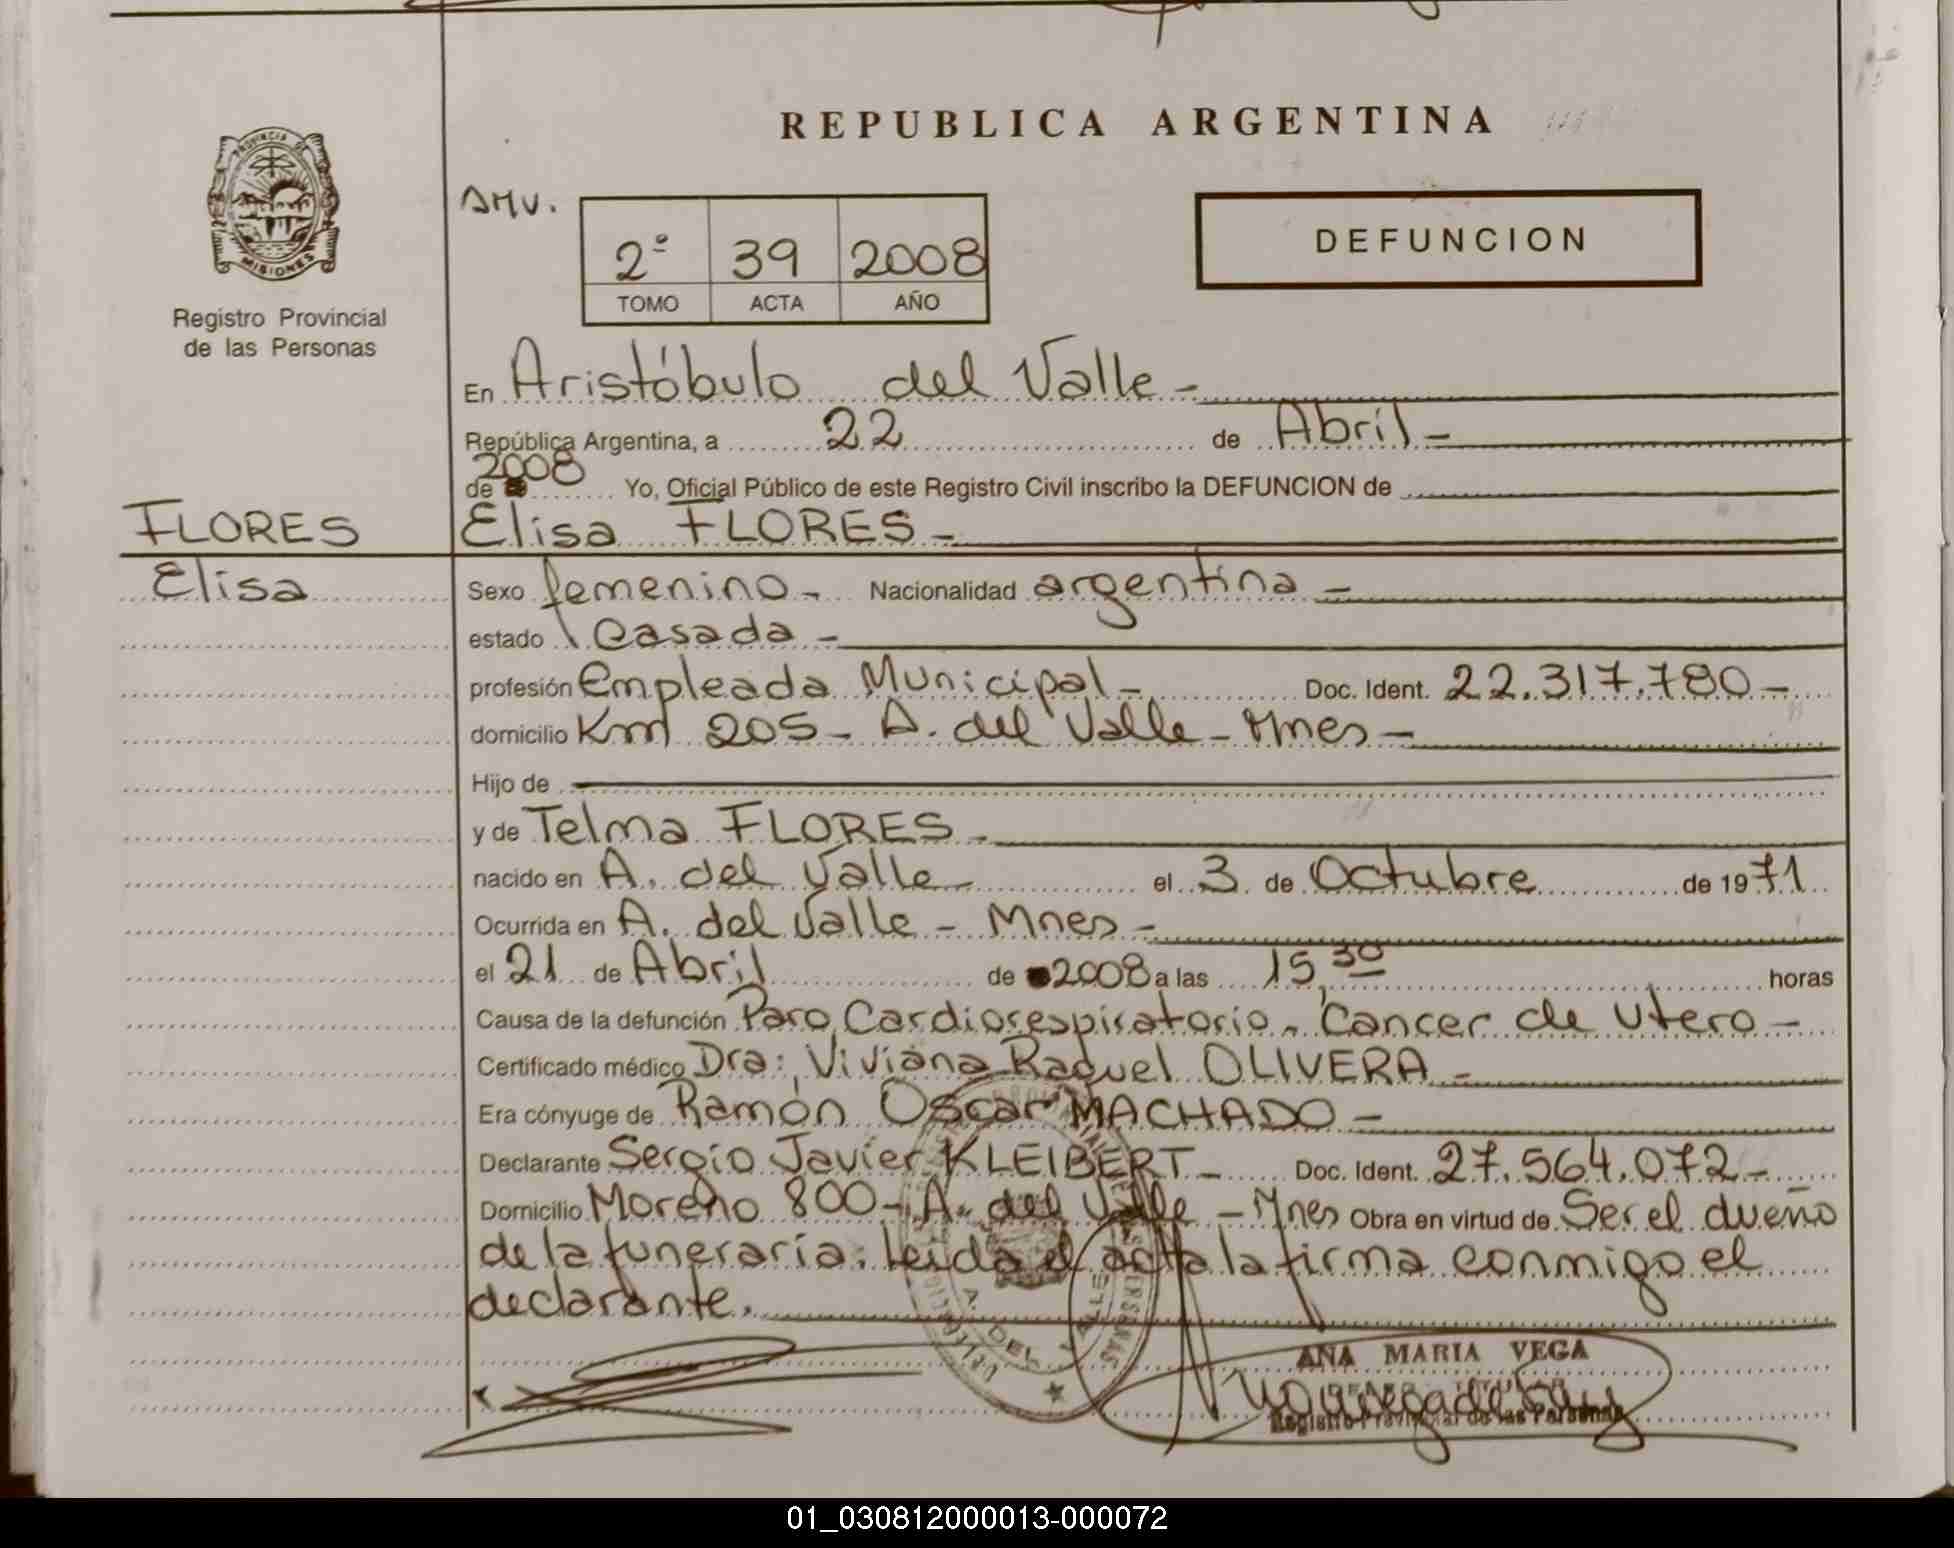 REPUBLICA ARGENTINA
PROVINCIA DE
MISIONES
Registro Provincial
de las Personas
AMV.
2º 39 2008
TOMO ACTA AÑO
DEFUNCION
En Aristóbulo del Valle -
República Argentina, a 22 de Abril -
2008
de Yo, Oficial Público de este Registro Civil inscribo la DEFUNCION de
FLORES Elisa FLORES -
Elisa Sexo femenino - Nacionalidad argentina -
estado Casada -
profesión Empleada Municipal - Doc. Ident. 22.317.780 -
domicilio Km 205 - A. del Valle - Mnes -
Hijo de
y de Telma FLORES -
nacido en A. del Valle - el 3 de Octubre de 1971
Ocurrida en A. del Valle - Mnes -
el 21 de Abril de 2008 a las 15,30 horas
Causa de la defunción Paro Cardiorespiratorio - Cancer de Utero -
Certificado médico Dra: Viviana Raquel OLIVERA -
Era cónyuge de Ramón Oscar MACHADO -
Declarante Sergio Javier KLEIBERT - Doc. Ident. 27.564.072 -
Domicilio Moreno 800 - A. del Valle - Mnes Obra en virtud de Ser el dueño
de la funeraria. Leida el acta la firma conmigo el
declarante.
A. DEL VALLE
ANA MARIA VEGA
Registro Provincial de las Personas
01_030812000013-000072